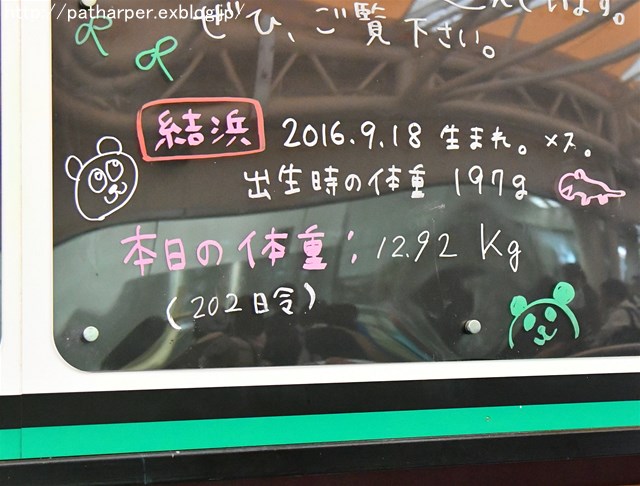 http://patharper.exblog.jp/
ています。
ぜひ、ご覧下さい。
結浜 2016.9.18 生まれ。メス。
出生時の体重 197g
本日の体重: 12.92 Kg
(202日令)